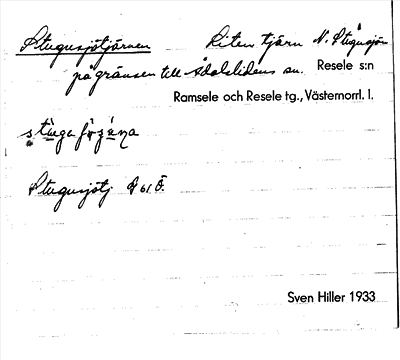 Stugusjötjärnen Liten tjärn N. Stugusjön
på gränsen till Ådalslidens sn. Resele s:n
Ramsele och Resele tg., Västernorrl. l.
Stugusjötj G 61 Ö.
Sven Hiller 1933